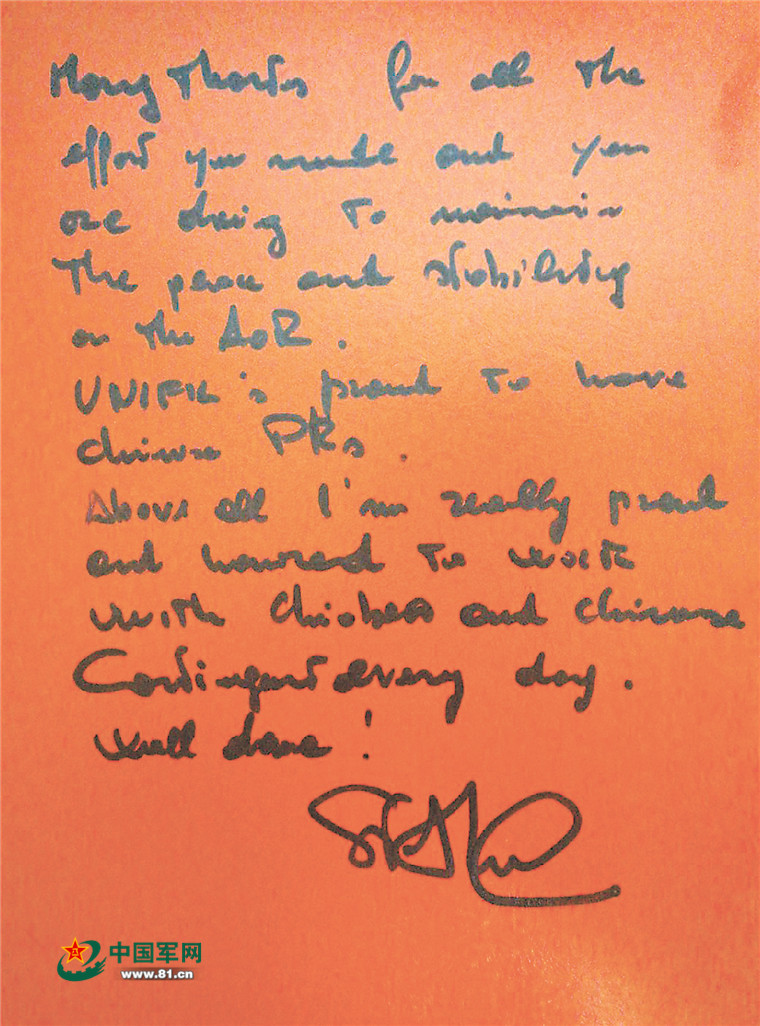 Many Thanks for all the
effort you made and you
are doing to maintain
The peace and stability
on the AoR.
UNIFIL's proud to have
chinese PKs.
Above all I'm really proud
and honored to work
with and chinese
Contingent every day.
Well done!
中国军网
www.81.cn